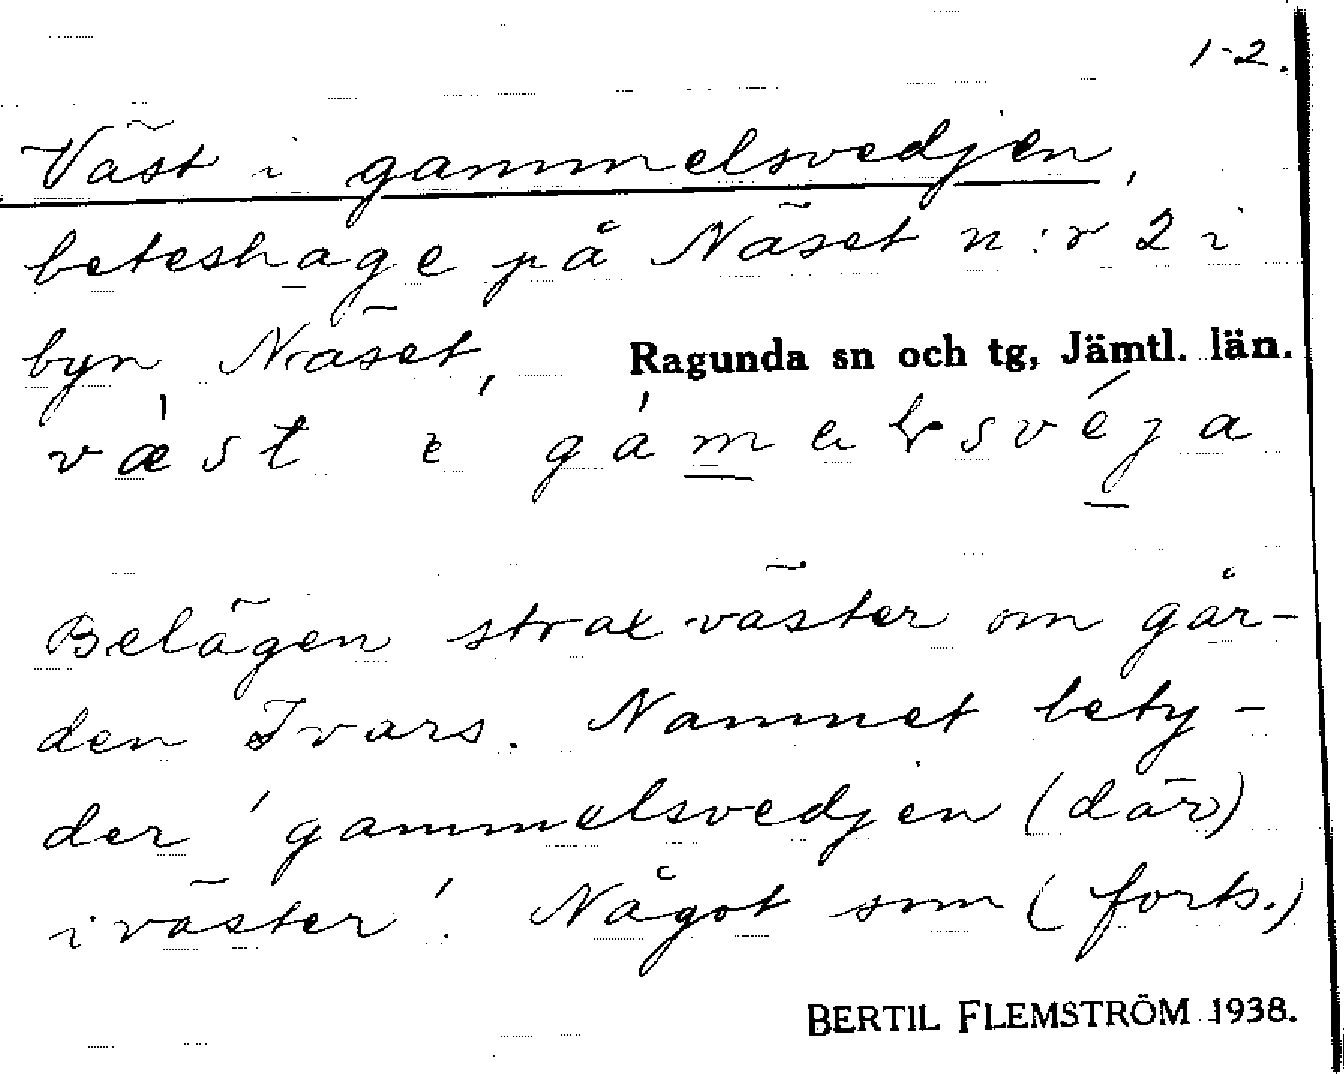 1-2.
Väst i gammelsvedjen,
beteshage på Näset n:r 2 i
byn Näset, Ragunda sn och tg, Jämtl. län.
væst i
Belägen strax väster om går-
den Ivars. Namnet bety-
der 'gammelsvedjen (där)
i väster'. Något som (forts.)
BERTIL FLEMSTRÖM 1938.